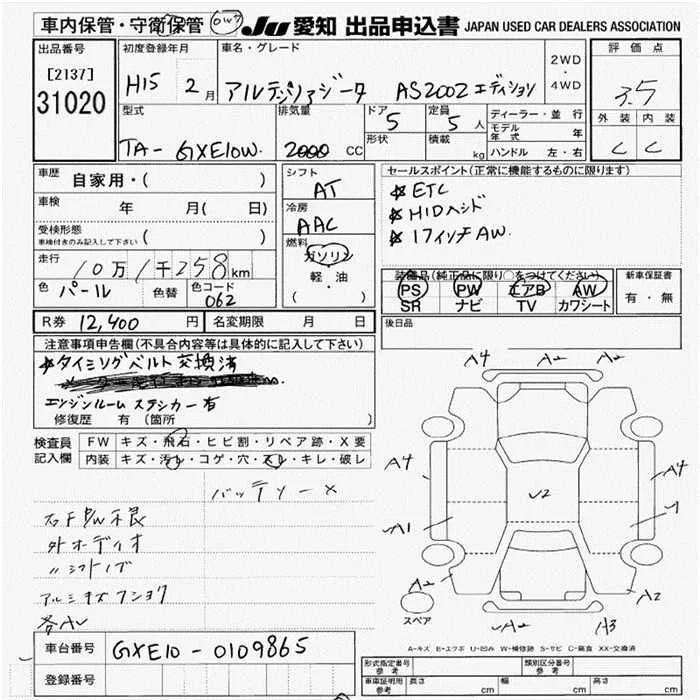 車内保管・守衛保管 Ju 愛知 出品申込書 JAPAN USED CAR DEALERS ASSOCIATION
出品番号 初度登録年月 車名・グレード 2WD ・ 4WD 評価点
[2137]
31020 H15 2月 アルテッツァジータ AS200Zエディション 3.5
型式 排気量 ドア 5 定員 5人 ディーラー・並行 外装 内装
TA-GXE10W. 2000cc 形状 積載 kg モデル年式 年 C C
ハンドル 左・右
車歴 自家用・( ) シフト AT セールスポイント(正常に機能するものに限ります)
車検 年 月( 日) 冷房 AAC ETC
受検形態 車検付きのみ記入して下さい ( ) HIDヘッド
燃料 ガソリン 軽・油 ( ) 17インチAW.
走行 10万1千258km
色 パール 色替 色コード 062
装備品(純正品に限り○をつけてください) 新車保証書
PS PW エアB AW 有・無
SR ナビ TV カワシート
R券 12,400円 名変期限 月 日 後日品
注意事項申告欄(不具合内容等は具体的に記入して下さい)
タイミングベルト交換済
エンジンルームステッカー有
修復歴 有 (箇所 )
検査員記入欄 FW キズ・飛石・ヒビ割・リペア跡・X要
内装 キズ・汚レ・コゲ・穴・スレ・キレ・破レ
バッテリー×
右FP/W不良
外オーディオ
〃シフトノブ
アルミキズフショク
各AU
A4 A2 A2
A4 A4
U2
A1
A2 A2
スペア A2 A3
A-キズ E-エクボ U-凹み W-補修跡 S-サビ C-腐食 XX-交換済
車台番号 GXE10-0109865
登録番号
形式指定番号 参考 類別区分番号 参考
車庫証明用 参考 長さ cm 幅 cm 高さ cm